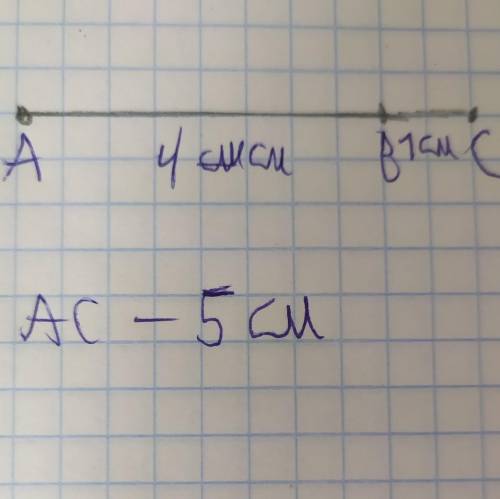 А 4 смсм В 1см С
АС — 5 см